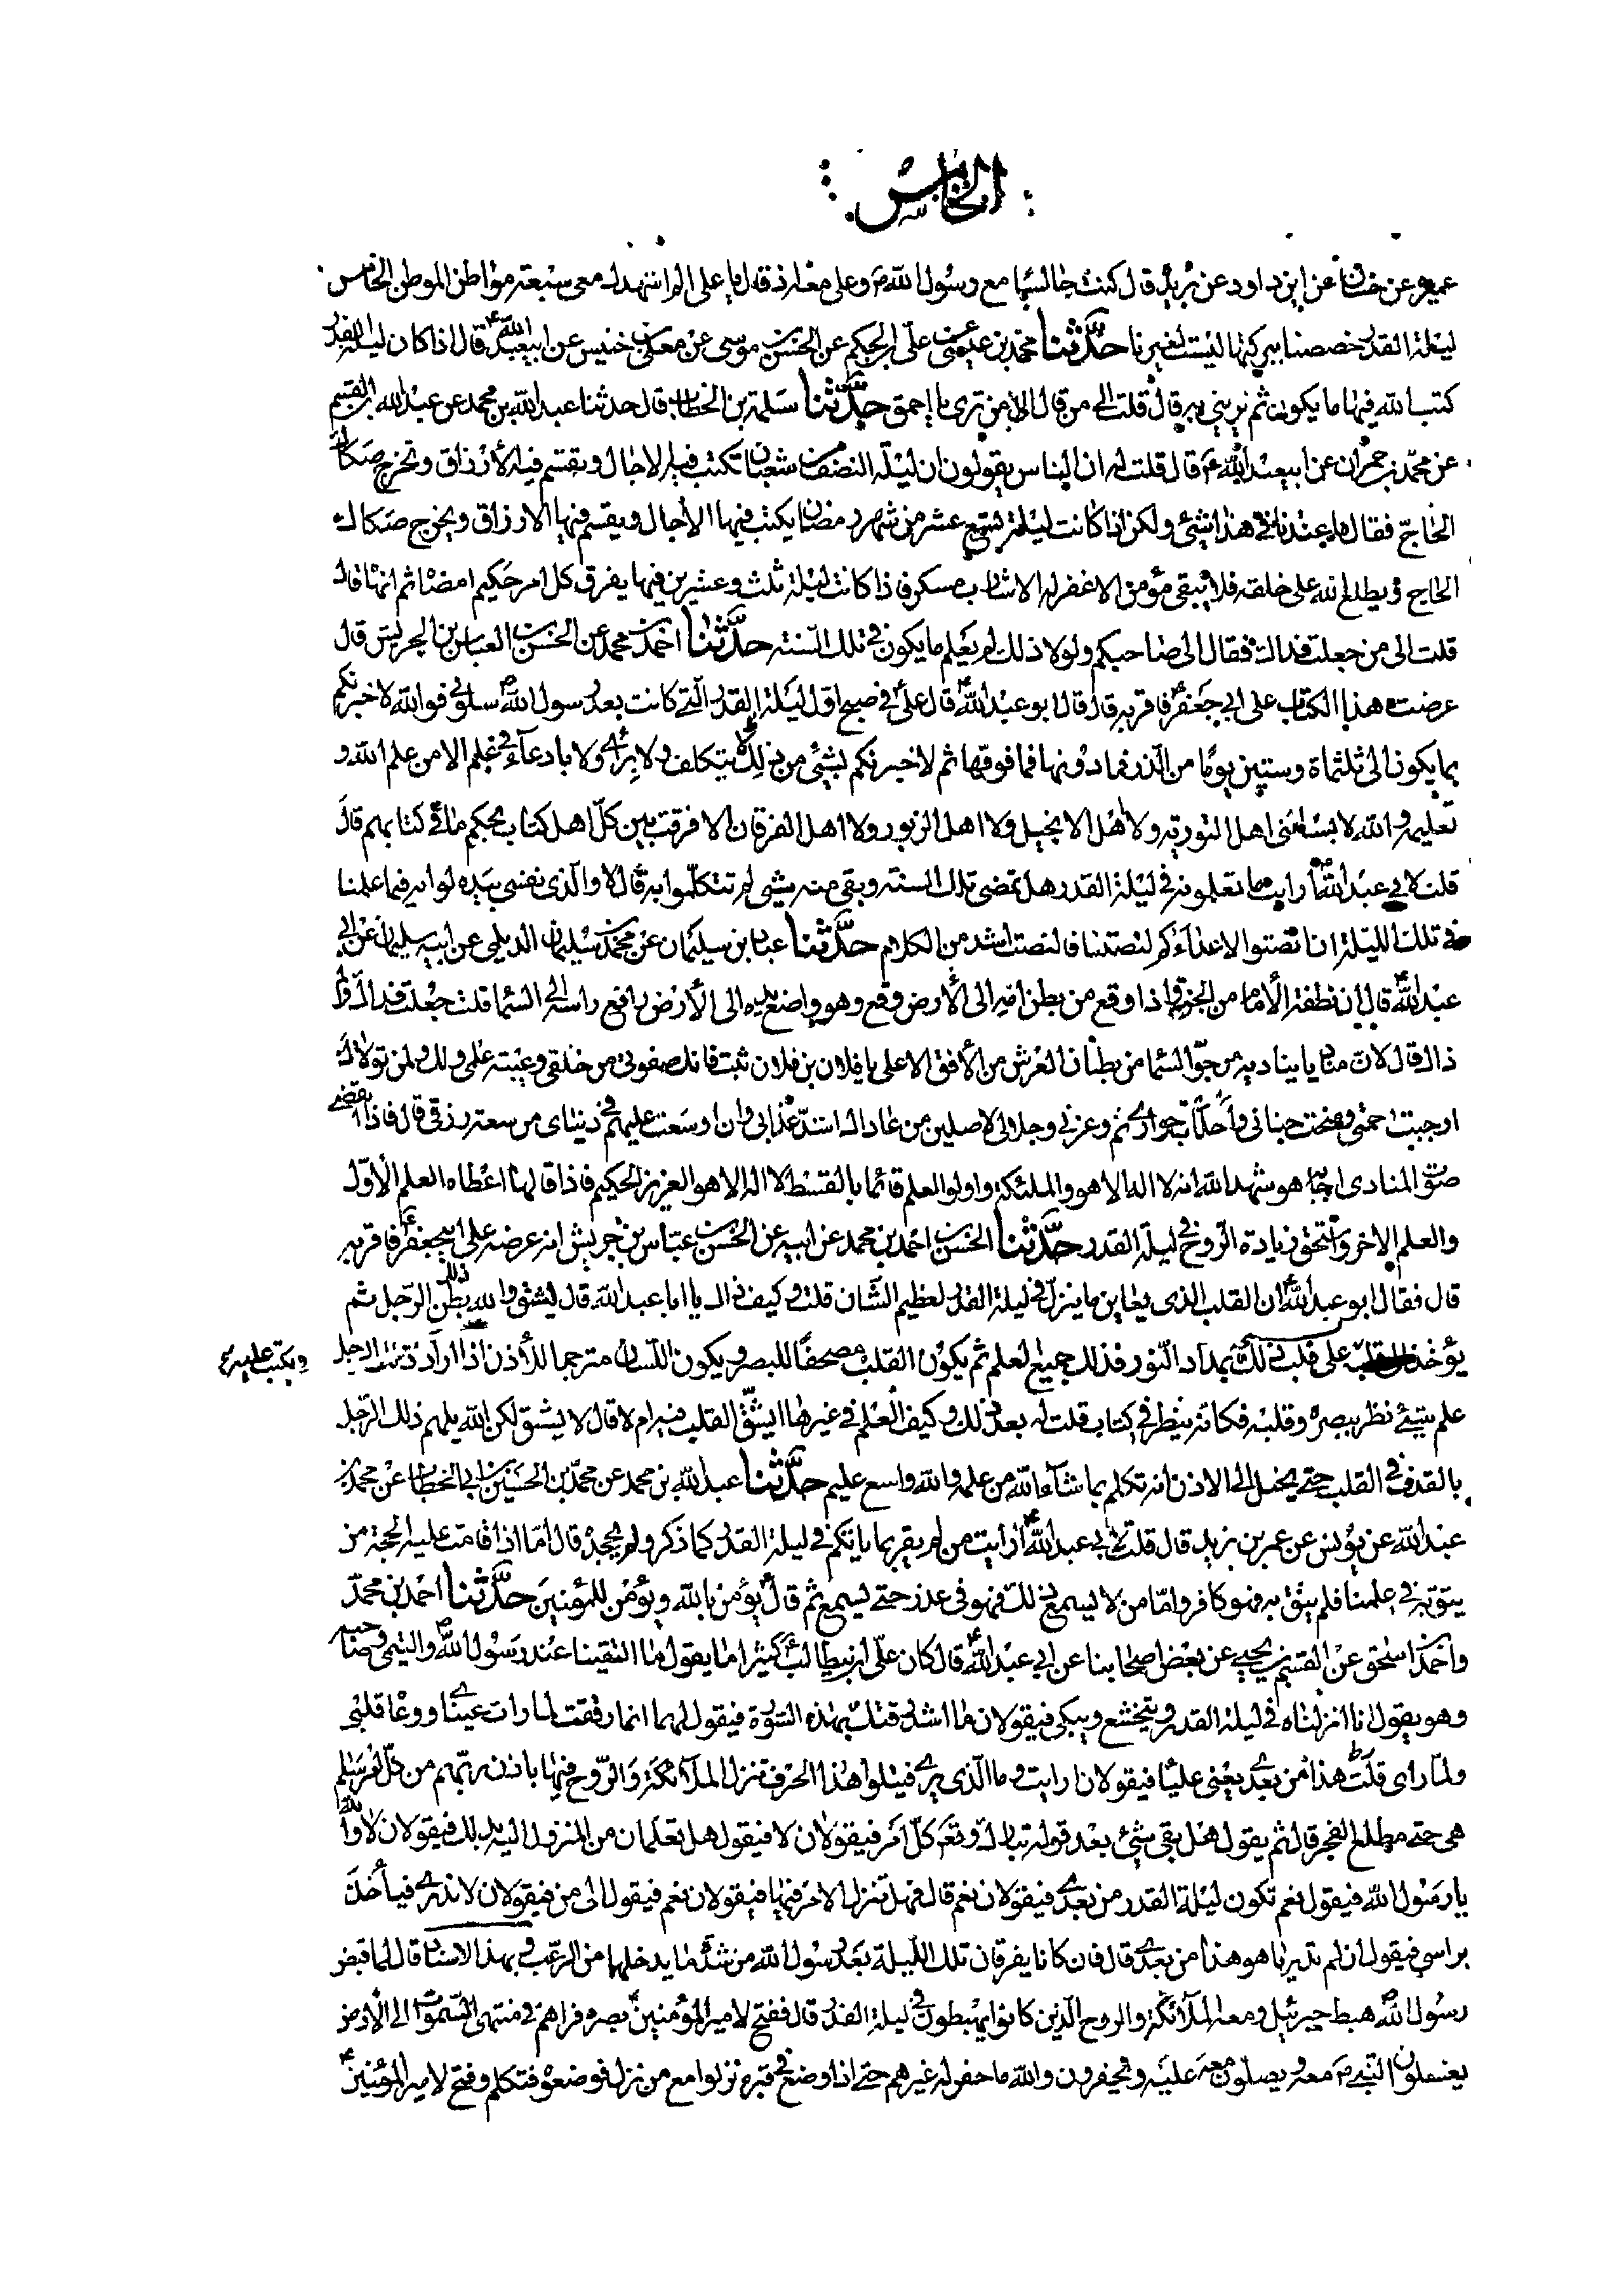 الخامس
عميرة عن حسان عن ابن داود عن بريد قال كنت جالسا مع رسول الله ص وعلى معه اذ قال يا على الم اشهدك معى سبعة مواطن الموطن الخامس
ليلة القدر خصصنا ببركتها ليست لغيرنا حدثنا محمد بن عيسى عن على بن الحكم عن الحسن بن موسى عن معلى بن خنيس عن ابيعبد الله ع قال اذا كان ليلة القدر
كتب الله فيها ما يكون ثم يرمى به قال قلت الى من قال الى من ترى يا احمق حدثنا سلمة بن الخطاب قال حدثنا عبد الله بن محمد عن عبد الله بن القسم
عن محمد بن حمران عن ابيعبد الله ع قال قلت له ان الناس يقولون ان ليلة النصف من شعبان تكتب فيه الاجال ويقسم فيه الارزاق وتخرج صكاك
الحاج فقال ما عندنا فى هذا شئ ولكن اذا كانت ليلة تسع عشر من شهر رمضان يكتب فيها الاجال ويقسم فيها الارزاق ويخرج صكاك
الحاج ويطلع الله على خلقه فلا يبقى مؤمن الا غفر له الا شارب مسكر فاذا كانت ليلة ثلث وعشرين فيها يفرق كل امر حكيم امضاه ثم انهاه قال
قلت الى من جعلت فداك فقال الى صاحبكم ولولا ذلك لم يعلم ما يكون فى تلك السنة حدثنا احمد بن محمد عن الحسن بن العباس بن الحريش قال
عرضت هذا الكتاب على ابى جعفر ع فاقر به قال قال ابو عبد الله ع قال على ع فى صبح اول ليلة القدر التى كانت بعد رسول الله ص سلونى فو الله لاخبرنكم
بما يكون الى ثلثماة وستين يوما من الذر فما دونها فما فوقها ثم لا خبرنكم بشئ من ذلك لا بتكلف ولا براى ولا بادعاء فى علم الا من علم الله و
تعليمه والله لا يسئلنى اهل التورية ولا اهل الانجيل ولا اهل الزبور ولا اهل الفرقان الا فرقت بين كل اهل كتاب بحكم ما فى كتابهم قال
قلت لابى عبد الله ع ارايت ما تعلمونه فى ليلة القدر هل تمضى تلك السنة وبقى منه شئ لم تتكلموا به قال لا والذى نفسى بيده لو انه فيما علمنا
فى تلك الليلة ان انصتوا لاعدائكم لنصتنا فالنصت اشد من الكلام حدثنا عباد بن سليمان عن محمد بن سليمان الديلمى عن ابيه سليمان عن ابى
عبد الله ع قال ان نطفة الامام من الجنة واذا وقع من بطن امه الى الارض وقع وهو واضع يده الى الارض رافع راسه الى السما قلت جعلت فداك ولم
ذاك قال لان مناديا يناديه من جو السما من بطنان العرش من الافق الاعلى يا فلان بن فلان ثبت فانك صفوتى من خلقى وعيبة علمى ولك ولمن تولاك
اوجبت رحمتى ومنحت جنانى واحلك جوارى ثم وعزتى وجلالى لاصلين من عاداك اشد عذابى وان اوسعت عليهم فى دنياى من سعة رزقى قال فاذا انقضى
صوت المنادى اجابه هو شهد الله انه لا اله الا هو والملئكة واولو العلم قائما بالقسط لا اله الا هو العزيز الحكيم فاذا قالها اعطاه العلم الاول
والعلم الاخر واستحق زيادة الروح فى ليلة القدر حدثنا الحسن بن احمد بن محمد عن ابيه عن الحسن بن عباس بن حريش انه عرضه على ابيجعفر ع فاقر به
قال فقال ابو عبد الله ع ان القلب الذى يعاين ما ينزل فى ليلة القدر لعظيم الشان قلت وكيف ذاك يا ابا عبد الله قال يشق والله بطن ذلك الرجل ثم
يؤخذ قلبه ويكتب عليه على قلب ذلك بمداد النور فذلك جميع العلم ثم يكون القلب مصحفا للبصر ويكون اللسان مترجما للاذن اذا اراد ذلك الرجل
علم شئ نظر ببصره وقلبه فكانه ينظر فى كتاب قلت له بعد ذلك وكيف العلم فى غيرها ايشق القلب فيه ام لا قال لا يشق لكن الله يلهم ذلك الرجل
بالقذف فى القلب حتى يخيل الى الاذن انه تكلم بما شاء الله من علمه والله واسع عليم حدثنا عبد الله بن محمد عن محمد بن الحسين بن ابى الخطاب عن محمد بن
عبد الله عن يونس عن عمر بن يزيد قال قلت لابى عبد الله ع ارايت من لم يقر بما ياتيكم فى ليلة القدر كما ذكر ولم يجحد قال اما اذا قامت عليه الحجة من
يثق به فى علمنا فلم يثق به فهو كافر واما من لا يسمع ذلك فهو فى عذر حتى يسمع ثم قال يؤمن بالله ويؤمن للمؤمنين حدثنا احمد بن محمد
واحمد بن اسحق عن القسم بن يحيى عن بعض اصحابنا عن ابى عبد الله ع قال كان على ابن ابيطالب ع كثيرا ما يقول ما التقينا عند رسول الله ص والتيمى وصاحبه
وهو يقول انا انزلناه فى ليلة القدر ويتخشع ويبكى فيقولان ما اشد رقتك بهذه السورة فيقول لهما انما رققت لما رات عيناى ووعاه قلبى
ولما راى قلب هذا من بعدى يعنى عليا فيقولان ارايت وما الذى يرى فيتلوا هذا الحرف تنزل الملائكة والروح فيها باذن ربهم من كل امر سلام
هى حتى مطلع الفجر قال ثم يقول هل بقى شئ بعد قوله تبارك وتعالى كل امر فيقولان لا فيقول هل تعلمان من المنزول اليه بذلك فيقولان لا والله
يا رسول الله فيقول نعم تكون ليلة القدر من بعدى فيقولان نعم قال فهل تنزل الامر فيها فيقولان نعم فيقول الى من فيقولان لا ندرى فياخذ
براسى فيقول ان لم تدريا هو هذا من بعدى قال فان كانا يفرقان تلك الليلة بعد رسول الله من شدة ما يدخلهما من الرعب وبهذا الاسناد قال لما قبض
رسول الله ص هبط جبرئيل ومعه الملائكة والروح الذين كانوا يهبطون فى ليلة القدر قال ففتح لامير المؤمنين ع بصره فراهم فى منتهى السموات الى الارض
يغسلون النبى ص معه ويصلون معه عليه ويحفرون والله ما حفر له غيرهم حتى اذا وضع فى قبره نزلوا مع من نزل فوضعوه فتكلم وفتح لامير المؤمنين ع